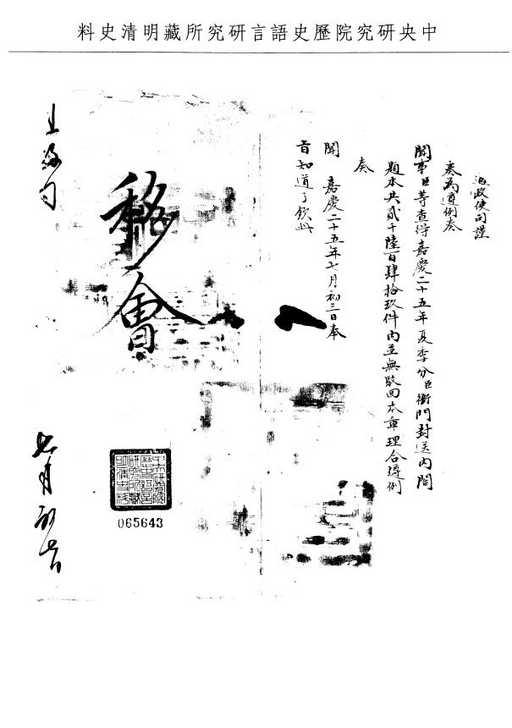 中央研究院歷史語言研究所藏明清史料
通政使司謹
奏為遵例奏
聞事臣等查得嘉慶二十五年夏季分臣衙門封送內閣
題本共貳千陸百肆拾玖件內並無駁回本章理合遵例
奏
聞 嘉慶二十五年七月初三日奉
旨知道了欽此
移會
七月初
065643